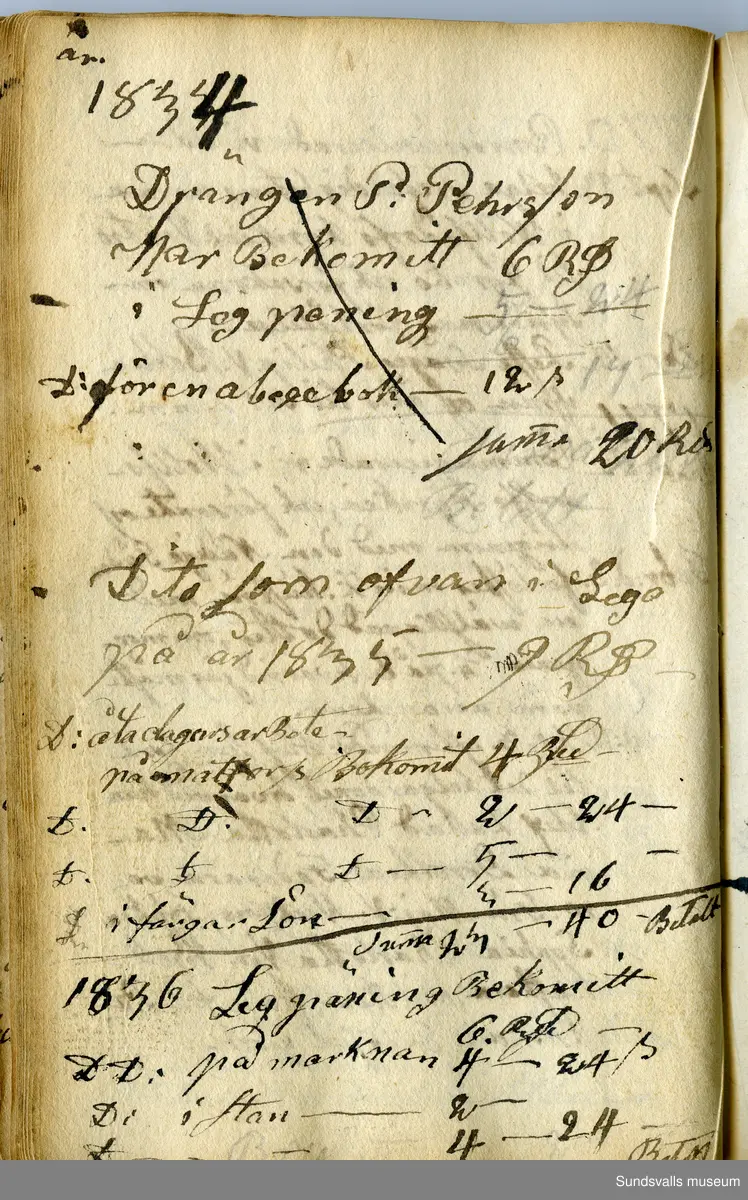 år.
1834
Drängen P: Pehrsson
Har Bekomitt 6 RD
i Leg pening — 5 — 24
D: för en abecebok — 12 ß
Suma 20 Rds
Dito som ofvan i Lego
på år 1835 — 9 RD
D: åta dagars arBete
på mattorp Bekomit 4 Rd
D. D. D — 2 — 24 —
D. D D — 5 — —
i färgar Lön — 3 — 16
Suma 23 — 40 — Betalt
1836 Leg päning Bekomitt
6. Rd —
D D: på marknan 4 — 24 ß
D: i stan — 2 —
4 — 24
Betalt
Sundsvalls museum